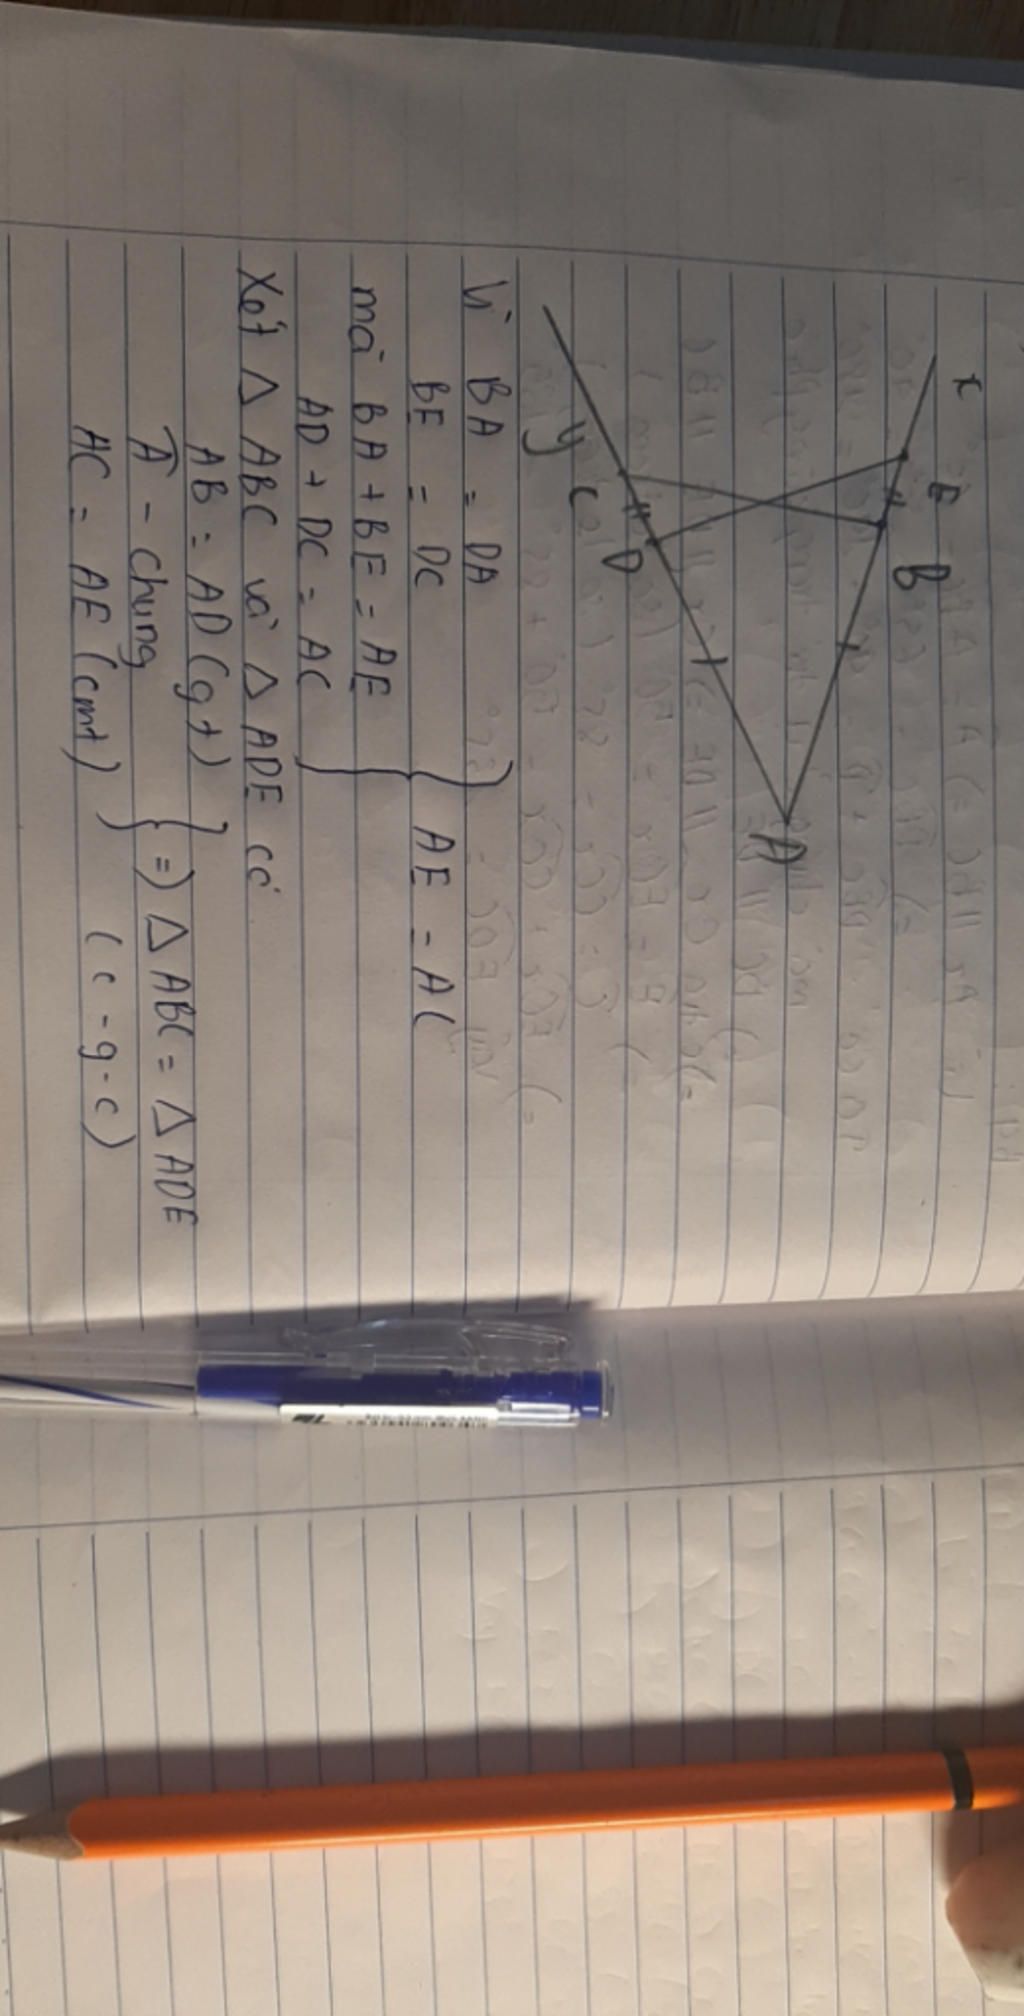 x
E
B
A
D
C
y
Vì BA = DA
BE = DC
mà BA + BE = AE
AD + DC = AC
AE = AC
Xét Δ ABC và Δ ADE có
AB = AD (gt)
Â - chung
AC = AE (cmt)
=) Δ ABC = Δ ADE
(c - g - c)